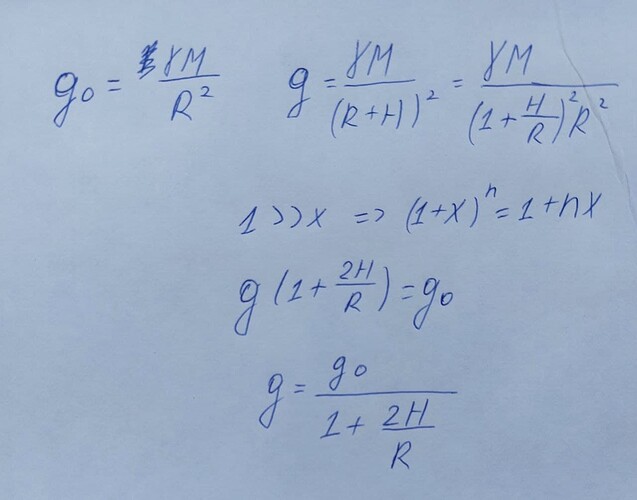 g₀ = γM/R² g = γM/(R+H)² = γM/((1+H/R)²R²)
1 >> x => (1+x)ⁿ = 1+nx
g(1+2H/R) = g₀
g = g₀/(1+2H/R)